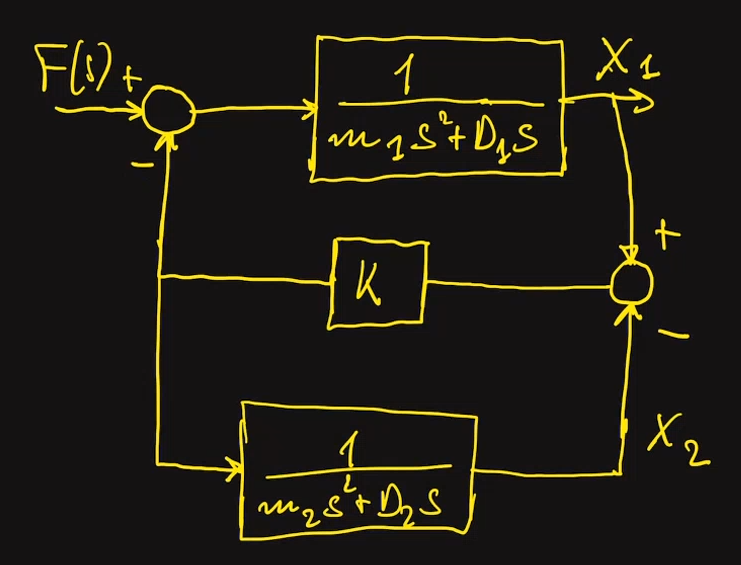 F(s) +
1
m₁s²+D₁s
X₁
−
+
K
−
1
m₂s²+D₂s
X₂